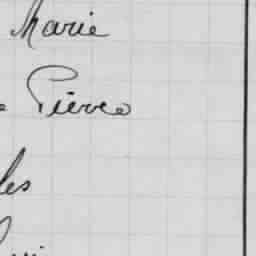 Marie
Pierre
les